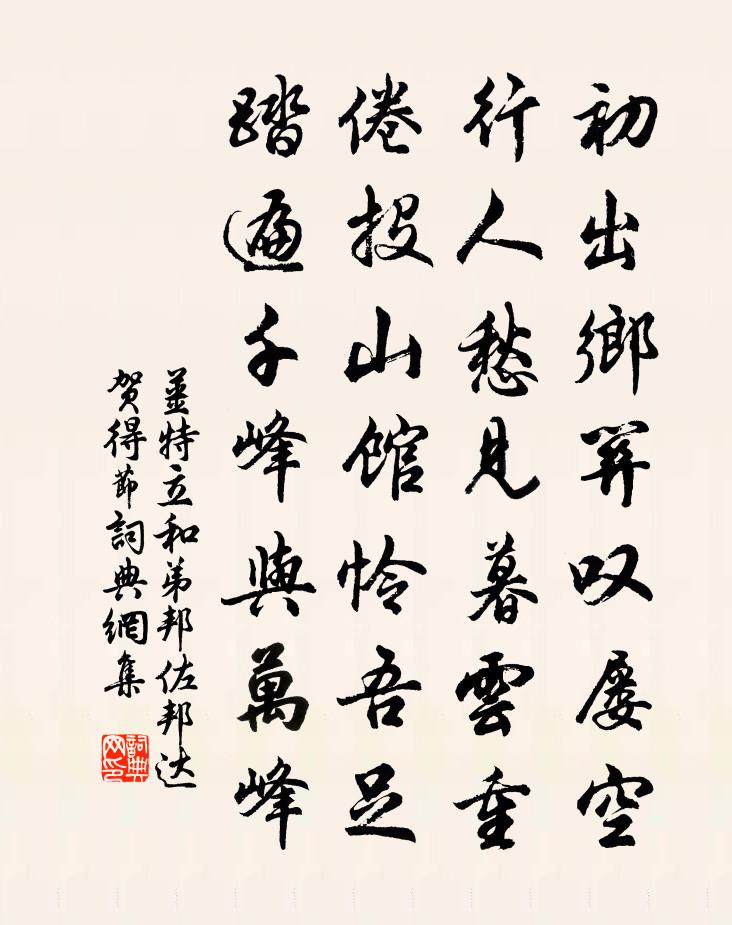 初出鄉關叹屡空
行人愁見暮雲重
倦投山館怜吾足
踏遍千峰與萬峰
姜特立和弟邦佐邦达
贺得節詞典網集
詞典网印